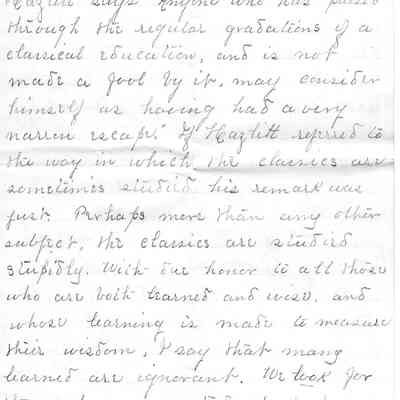 Hazlitt says "Anyone who has passed
through the regular gradations of a
classical education, and is not
made a fool by it, may consider
himself as having had a very
narrow escape." If Hazlitt referred to
the way in which the classics are
sometimes studied his remark was
just. Perhaps more than any other
subject, the classics are studied
stupidly. With due honor to all those
who are both learned and wise, and
whose learning is made to measure
their wisdom, I say that many
learned are ignorant. We look for